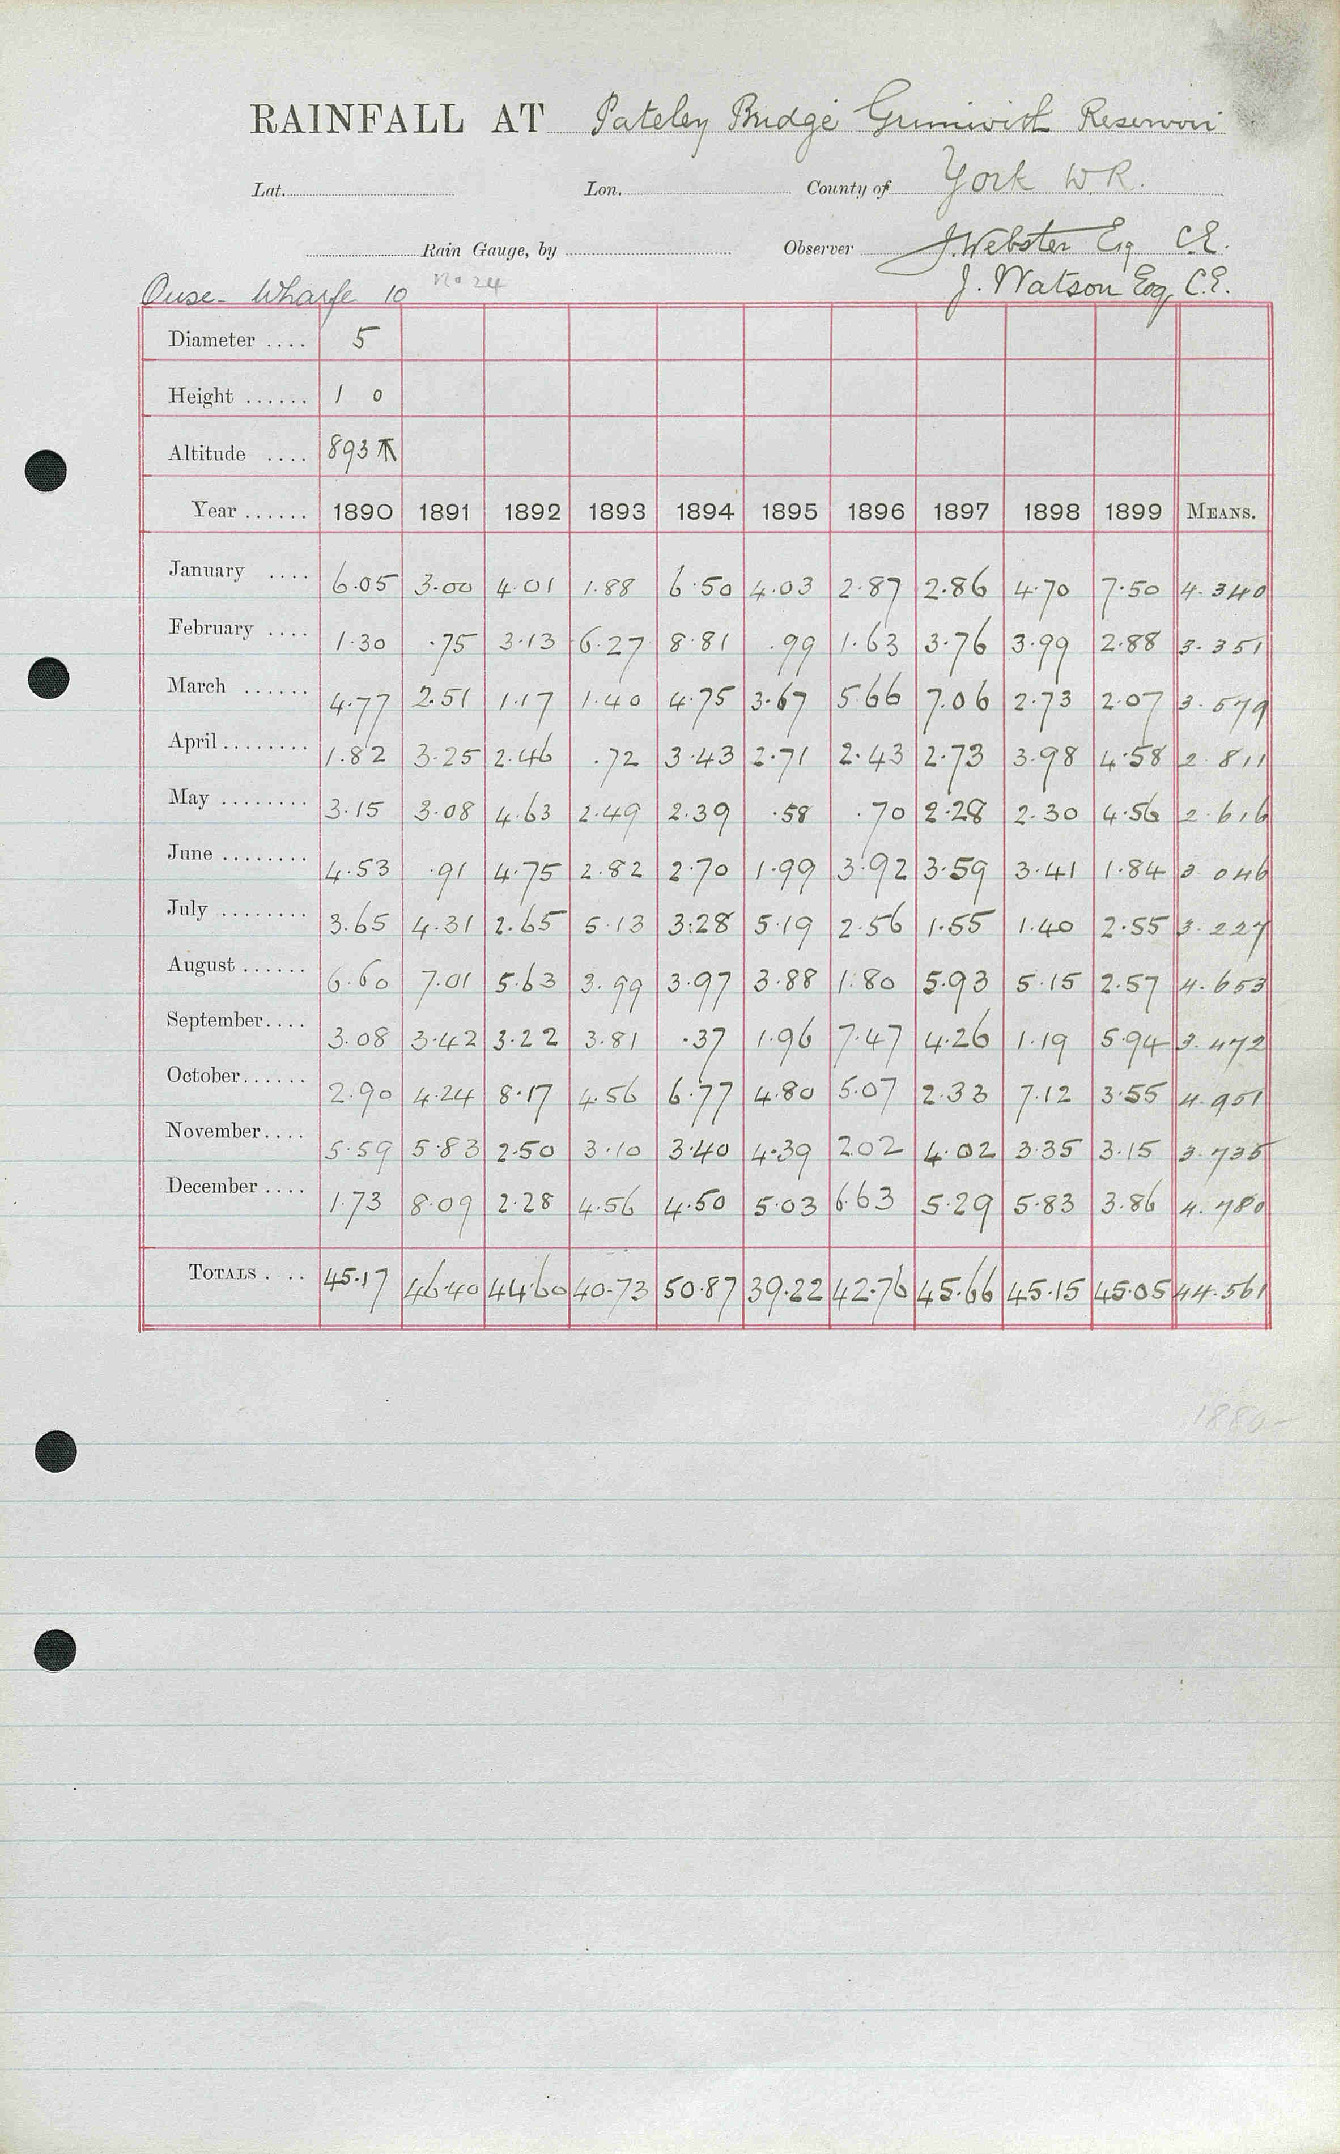 RAINFALL AT Pateley Bridge Grimwith Reservoir
Lat. Lon. County of York W.R.
Rain Gauge, by Observer J. Webster Esq C.E.
Ouse - Wharfe 10 No 24 J. Watson Esq, C.E.
Diameter .... 5
Height ...... 1 0
Altitude .... 893
Year ...... 1890 1891 1892 1893 1894 1895 1896 1897 1898 1899 MEANS.
January .... 6.05 3.00 4.01 1.88 6.50 4.03 2.87 2.86 4.70 7.50 4.340
February .... 1.30 .75 3.13 6.27 8.81 .99 1.63 3.76 3.99 2.88 3.351
March ...... 4.77 2.51 1.17 1.40 4.75 3.67 5.66 7.06 2.73 2.07 3.579
April ........ 1.82 3.25 2.46 .72 3.43 2.71 2.43 2.73 3.98 4.58 2.811
May ........ 3.15 3.08 4.63 2.49 2.39 .58 .70 2.28 2.30 4.56 2.616
June ........ 4.53 .91 4.75 2.82 2.70 1.99 3.92 3.59 3.41 1.84 3.046
July ........ 3.65 4.31 2.65 5.13 3.28 5.19 2.56 1.55 1.40 2.55 3.227
August ...... 6.60 7.01 5.63 3.99 3.97 3.88 1.80 5.93 5.15 2.57 4.653
September .... 3.08 3.42 3.22 3.81 .37 1.96 7.47 4.26 1.19 5.94 3.472
October ...... 2.90 4.24 8.17 4.56 6.77 4.80 5.07 2.33 7.12 3.55 4.951
November .... 5.59 5.83 2.50 3.10 3.40 4.39 2.02 4.02 3.35 3.15 3.735
December .... 1.73 8.09 2.28 4.56 4.50 5.03 6.63 5.29 5.83 3.86 4.780
TOTALS . .. 45.17 46.40 44.60 40.73 50.87 39.22 42.76 45.66 45.15 45.05 44.561
1880-